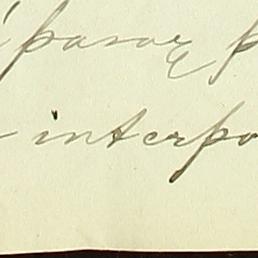 parar p
interpo